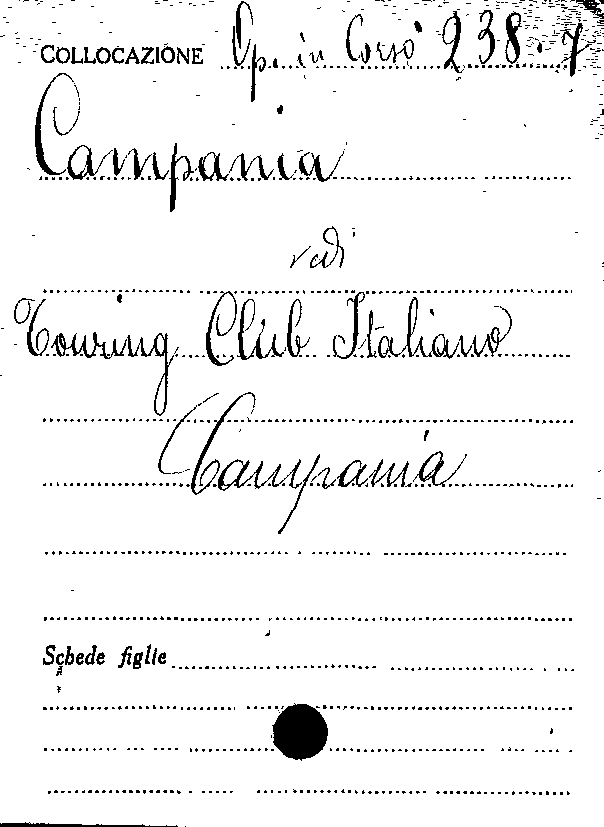 COLLOCAZIONE Op. in Corso 238.7
Campania
vedi
Touring Club Italiano
Campania
Schede figlie